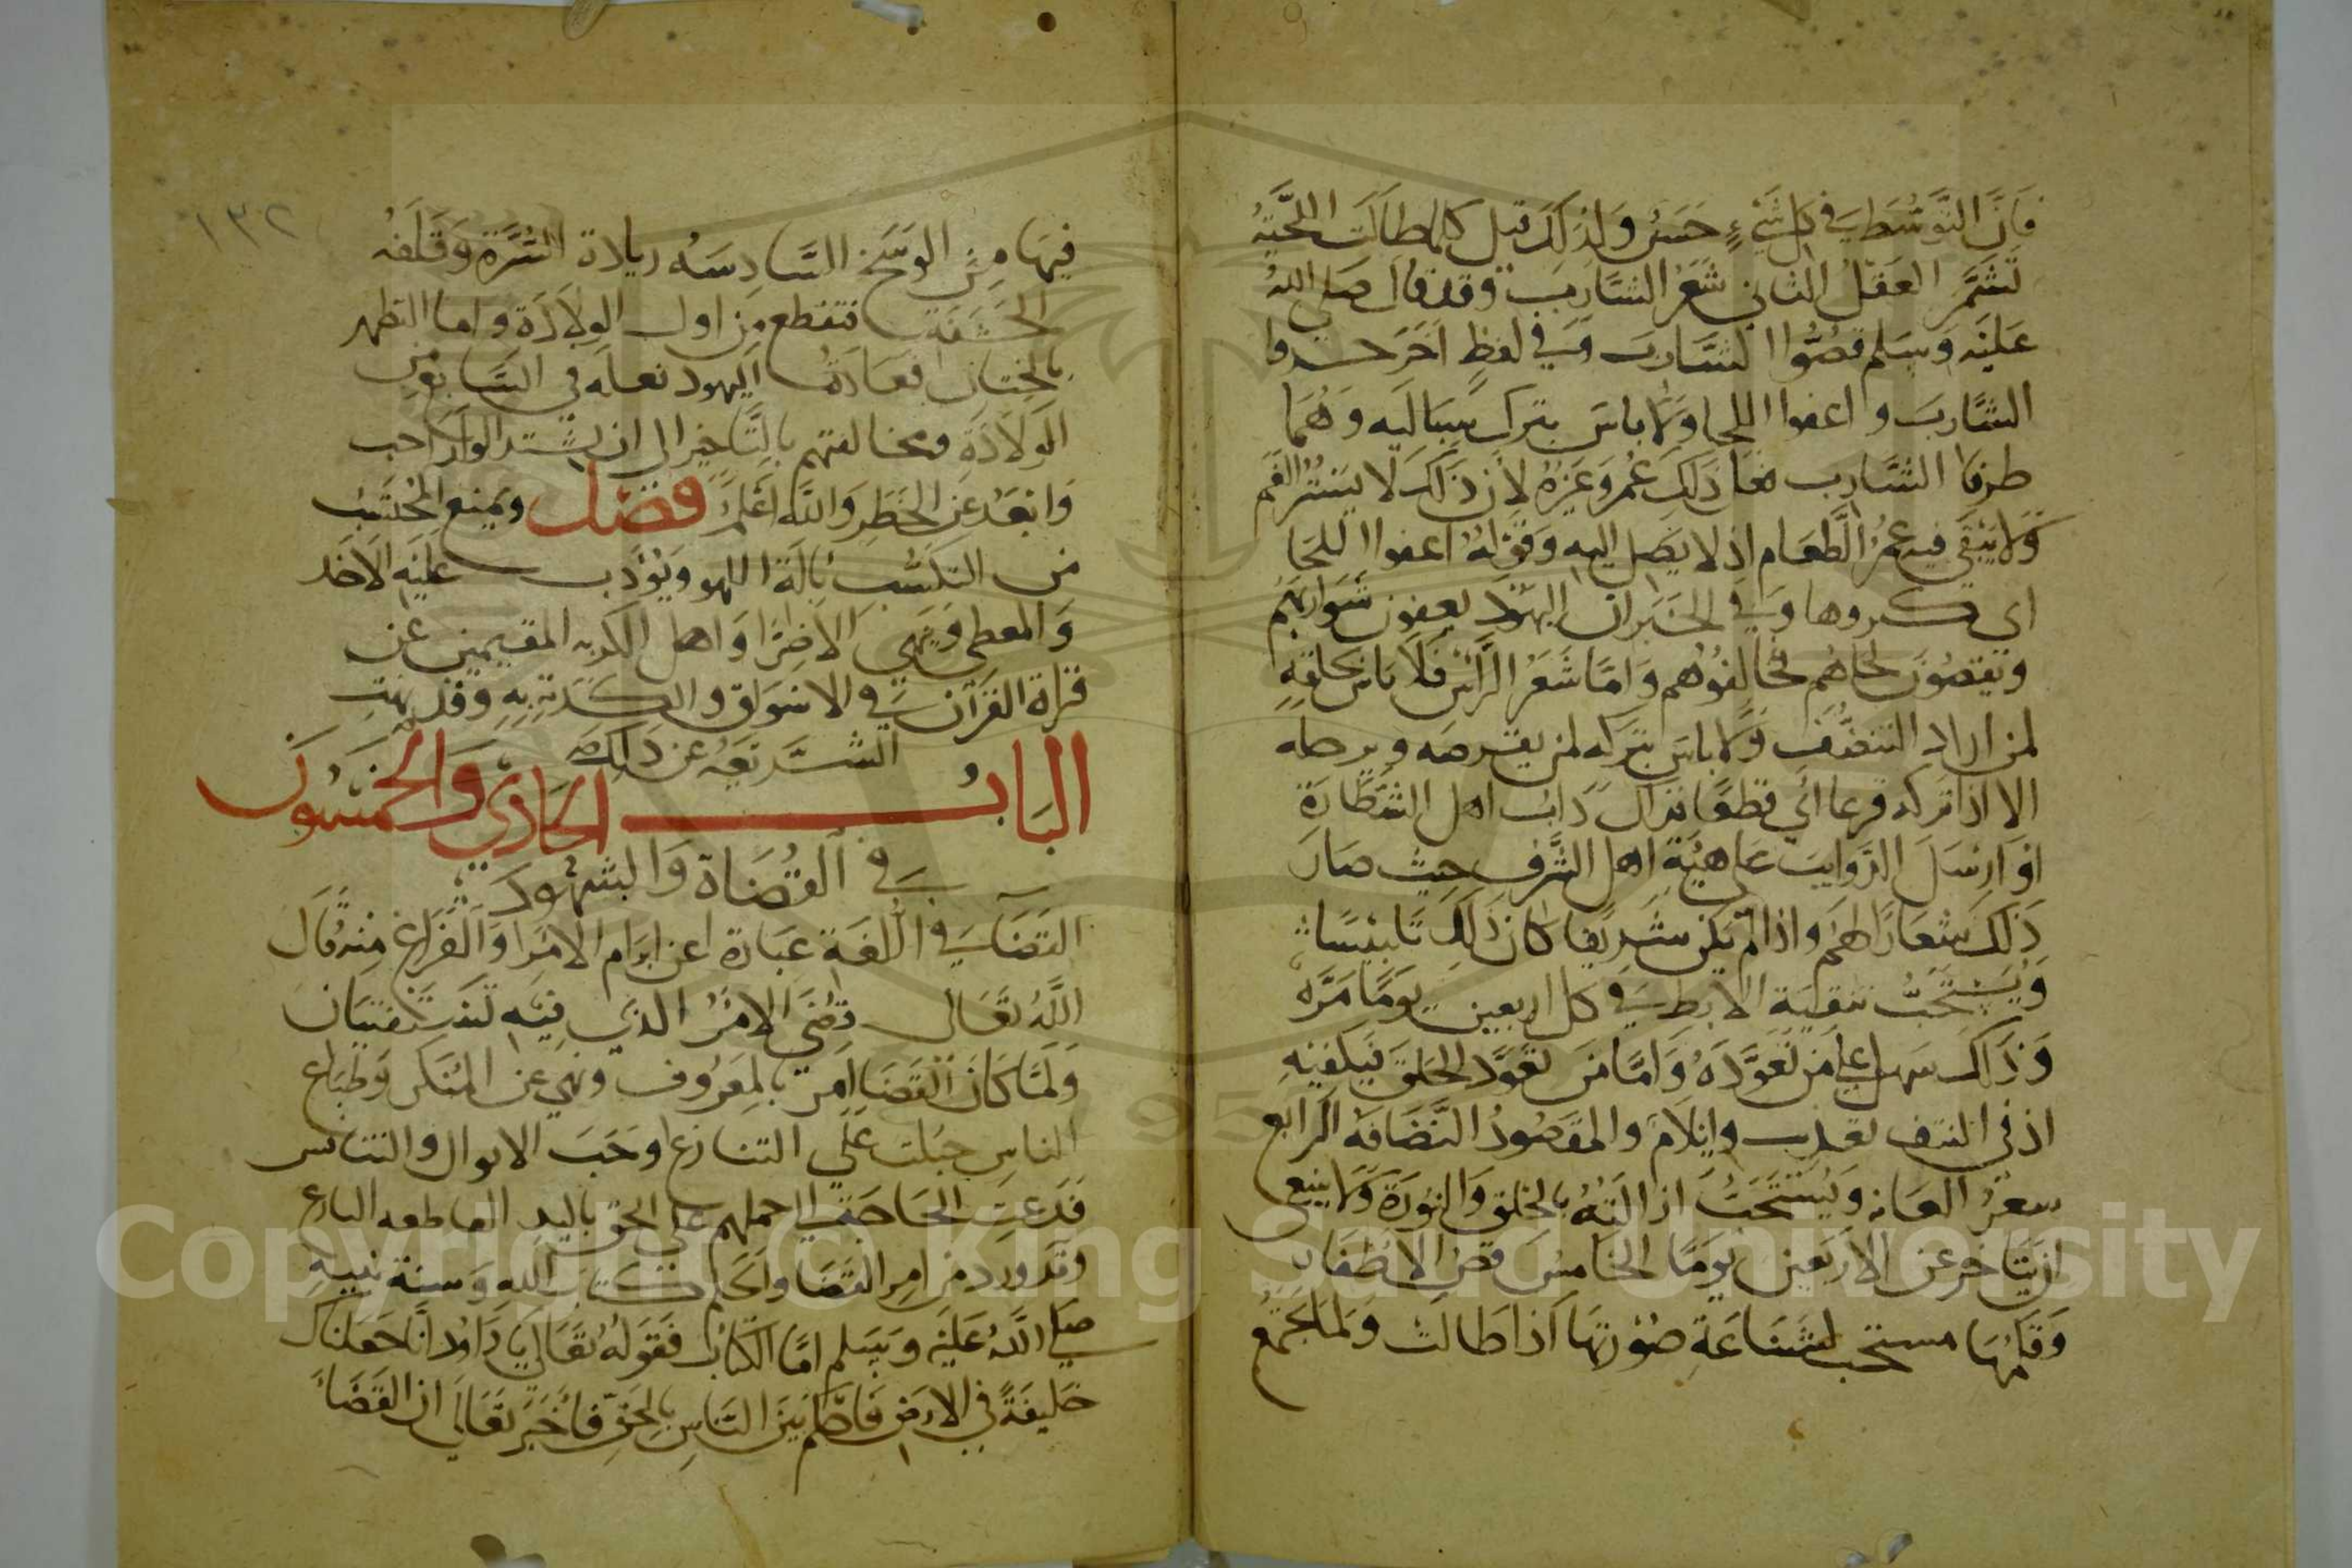 فَاِنَّ التَّوَسُّطَ فِي كل شَيْءٍ حَسَنٌ وَلِذَلِكَ قيل كلما طَالَت اللِّحْيَةُ
تَشَمَّرَ العَقْلُ الثاني شَعَرُ الشَّارِب وقد قال صَلى اللهُ
عَلَيْهِ وَسَلم قصُّوا الشَّارِبَ وَفي لفظٍ آخَرَ
الشَّارِبَ واعفوا اللحا ولا باسَ بترك سِبَاليه وَهُمَا
طرفا الشَّارِب فعل ذلِك عُمر وَغيْرهُ لِأن ذَلكَ لا يَسْتُرُ الفَم
وَلَا يَبْقَى فيه غَمرُ الطَّعَام اذ لا يَصِل اليه وَقوْلهُ اعفوا اللحَا
اي كثروها وَفي الخبَر ان اليَهُودَ يعفون شَوَاربَهُم
ويَقصُّونَ لحَاهُم فخَالِفُوهُم وَامَّا شَعَرُ الرَّأس فَلَا باس بحَلقِهِ
لمن اراد التنظف وَلا باسَ بتركه لمن
الا اذا تركه قزعا اي قطعًا دَابُ اهل الشَّطَارَة
اوْ ارسَلَ الذوايب على هَيْئَة اهل الشَّرف حيث صَارَ
ذَلكَ شِعَارًا لهُم وَاذا لم يكن شريفا كان ذلك تَلبيسًا
وَيُسْتَحَبُّ تنقية الابط فِي كل اربعين يَومًا مَرَّة
وَذَلك سَهل على من تَعَوَّدَهُ وَامَّا مَن تعَوَّد الحَلقَ فيَكفِيهِ
اذ في النتف تعذيب وايْلَام والمقصُودُ النَّظَافَة الرابع
شعرُ العَانه وَيُسْتَحَبُّ ازالَتهُ بالحلق وَالنُورَة وَلا ينبغي
ان يَتَاخر عن الاربَعين يَومًا الخامِس قص الاَظفار
وَقَلمُهَا مستحب لشَنَاعَةِ صُوْرتهَا اذا طَالت وَلمَا يجتمعُ
١٣٢
فيهَا مِنَ الوَسَخ السَّادِسَه زيادة السُّرَّة وَقلفَة
الحَشفَة فتقطع من اول الولَادَة واما التطهر
بالختان فعَادَة اليهود فعله في السَّابع من
الولَادَة ومخالفتهم بالتَّاخير الى ان يشتد الولد احب
وَابعَد عن الخَطر وَاللّه اعْلَمُ فَصْل ويَمنع المحتَسِب
من التكسُّب بآلة اللهو وَيُؤدِّب عليْهِ الاخذ
وَالمعطي وَيَنهي الاضِرّا وَاهل الكديه المقيمين عن
قرأة القرآن فِي الاسْوَاق والكدية بِهِ وَقد نَهَت
الشريعَه عن ذلك
البَابُ الحَادِي وَالخمسُونَ
فِي القُضَاة وَالشهُود
القَضَا فِي اللغَة عبَارة عن ابرام الامْر وَالفَرَاغ مِنهُ قَالَ
اللَّهُ تَعَالى قُضِيَ الامْرُ الذي فِيْهِ تَسْتَفْتِيَان
وَلَمَّا كَان القَضَا امر بالمعرُوف ونهي عن المُنكَر وَطِبَاع
النَاسِ جبُلت عَلَي التنازع وَحَبَ الاموال والتنافس
فدَعَتِ الحَاجَة الي حملهم علي الحق باليد القاطعه
وَقد ورد من امر القَضَا وَالحكم كتَاب الله وَسنة نَبيهِ
صَلي اللهُ عَليْهِ وَسَلم امَّا الكتَابُ فَقَولهُ تَعَالي يَا دَاوُد انَّا جَعَلنَاكَ
خَليفَةً في الارض فَاحْكُم بَيْنَ النَّاسِ بِالحَقِّ فَأَخْبَرَ تَعَالَى ان القَضَاءَ